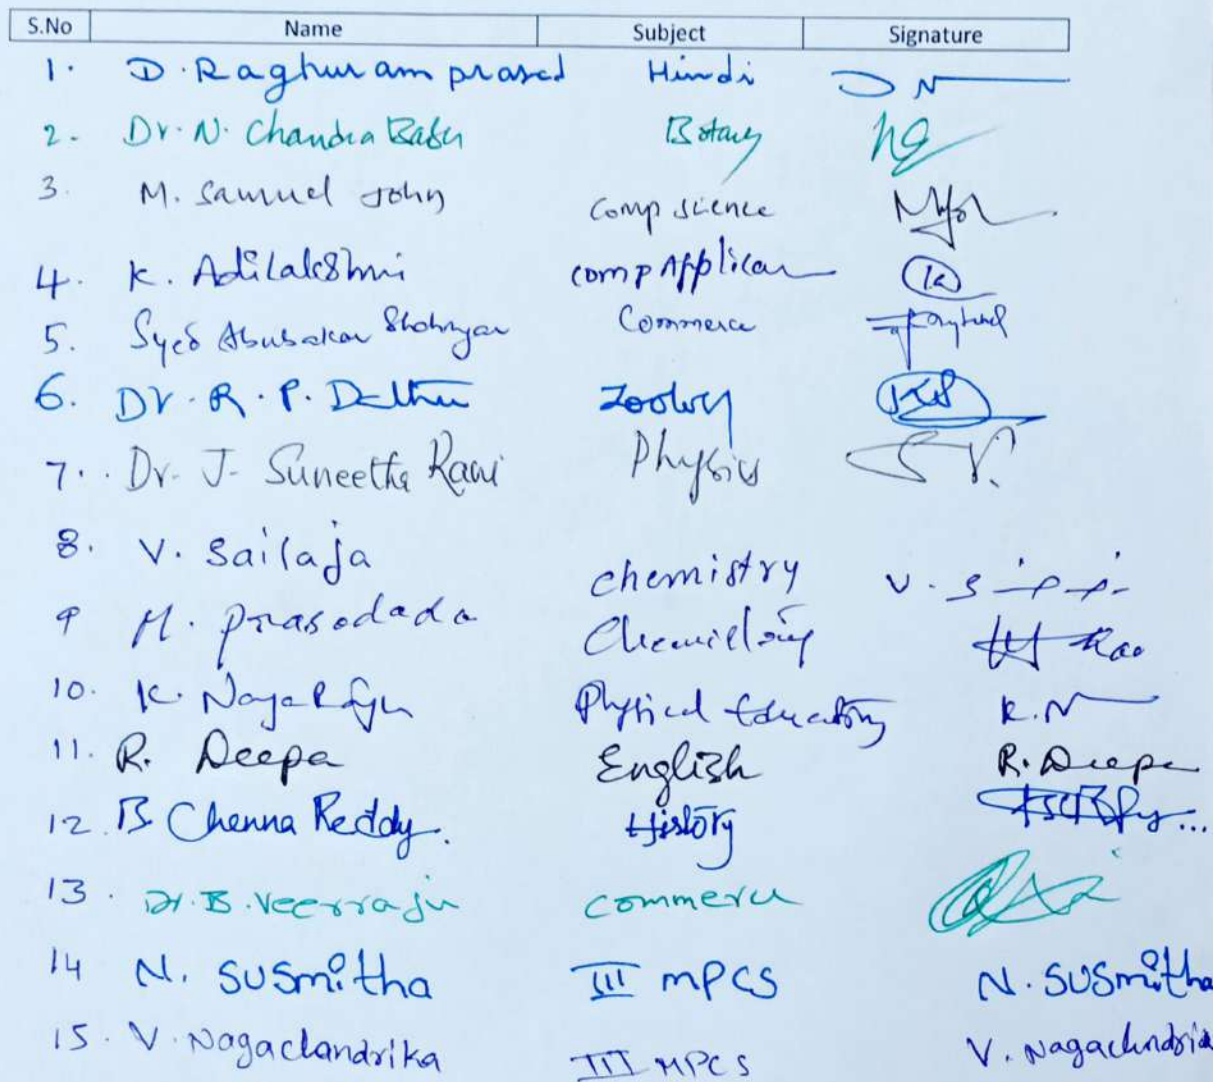 S.No Name Subject Signature
1. D. Raghuram prasad Hindi
2. Dr. N. Chandra Babu Botany
3. M. Samuel John Comp science
4. K. Adilakshmi comp Applican
5. Syed Abubakar Commerce
6. Dr. R. P. Zoology
7. Dr. J. Suneetha Rani Physics
8. V. Sailaja chemistry
9 M. prasodada Chemistry
10. K. Nagaraju Physical Education K.N
11. R. Deepa English R. Deepa
12. B Chenna Reddy. History
13. Dr. B. Veerraju commerce
14 N. SUSmitha III MPCS N. SUSmitha
15. V. Nagachandrika III MPCS V. Nagachandrika